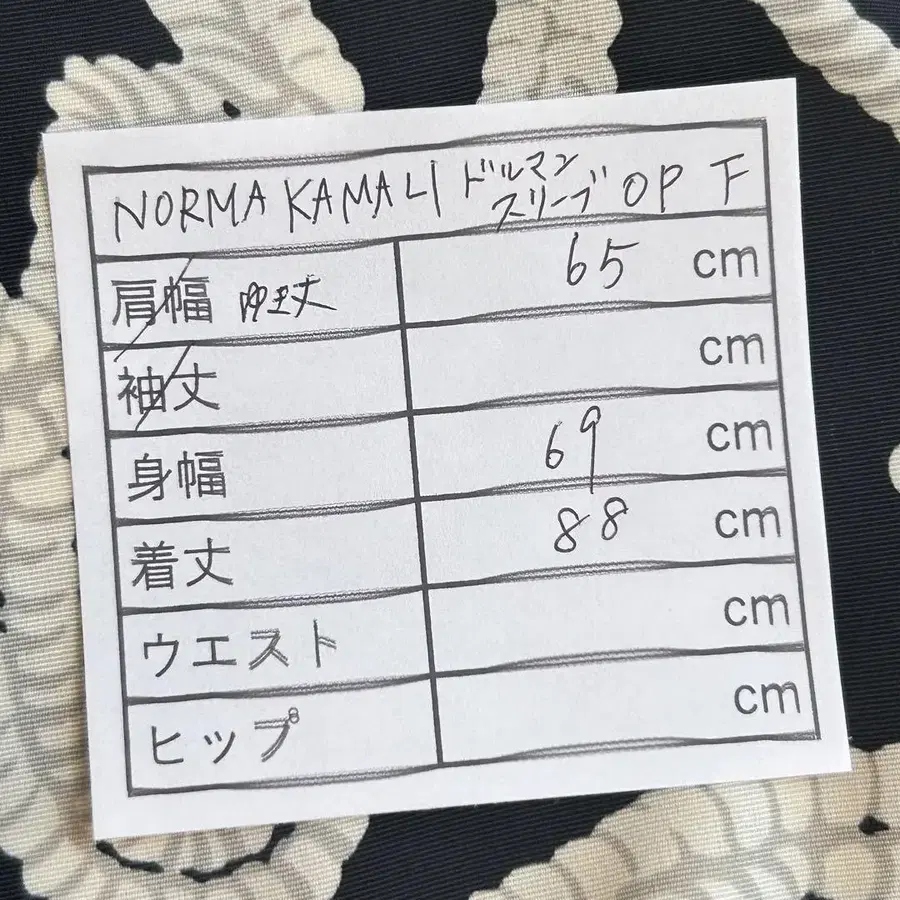 NORMA KAMALI ドルマンスリーブ OP F
肩幅 ゆき丈 65 cm
袖丈 cm
身幅 69 cm
着丈 88 cm
ウエスト cm
ヒップ cm